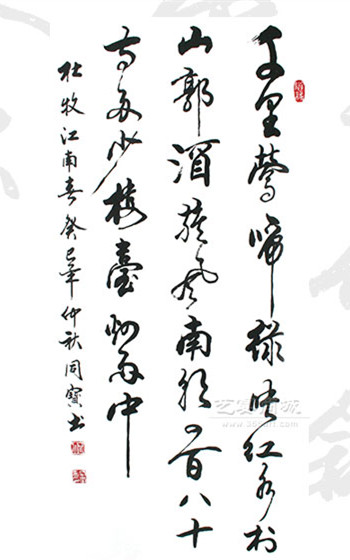 千里鶯啼綠映紅水村
山郭酒旗風南朝四百八十
寺多少樓臺烟雨中
杜牧江南春癸巳年仲秋同寶书